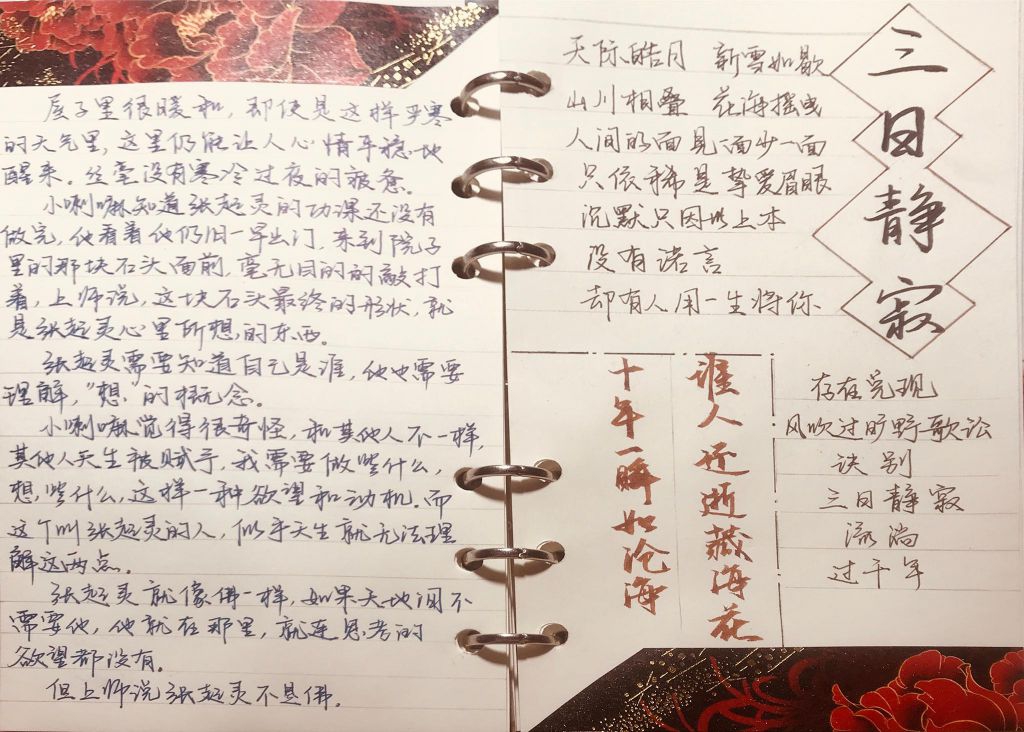 屋子里很暖和，即使是这样严寒
的天气里，这里仍能让人心情平稳地
醒来。丝毫没有寒冷过夜的疲惫。
小喇嘛知道张起灵的功课还没有
做完，他看着他仍旧一早出门，来到院子
里的那块石头面前，毫无目的的敲打
着，上师说，这块石头最终的形状，就
是张起灵心里所想的东西。
张起灵需要知道自己是谁，他也需要
理解，“想”的概念。
小喇嘛觉得很奇怪，和其他人不一样，
其他人天生被赋予，我需要做些什么，
想些什么，这样一种欲望和动机。而
这个叫张起灵的人，似乎天生就无法理
解这两点。
张起灵就像佛一样，如果天地间不
需要他，他就在那里，就连思考的
欲望都没有。
但上师说张起灵不是佛。
三日静寂
天际皓月 新雪如歇
山川相叠 花海摇曳
人间的面见一面少一面
只依稀是挚爱眉眼
沉默只因以上本
没有诺言
却有人用一生将你
谁人还逝藏海花
十年一瞬如沧海
存在兑现
风吹过旷野歌讼
诀别
三日静寂
流淌
过千年